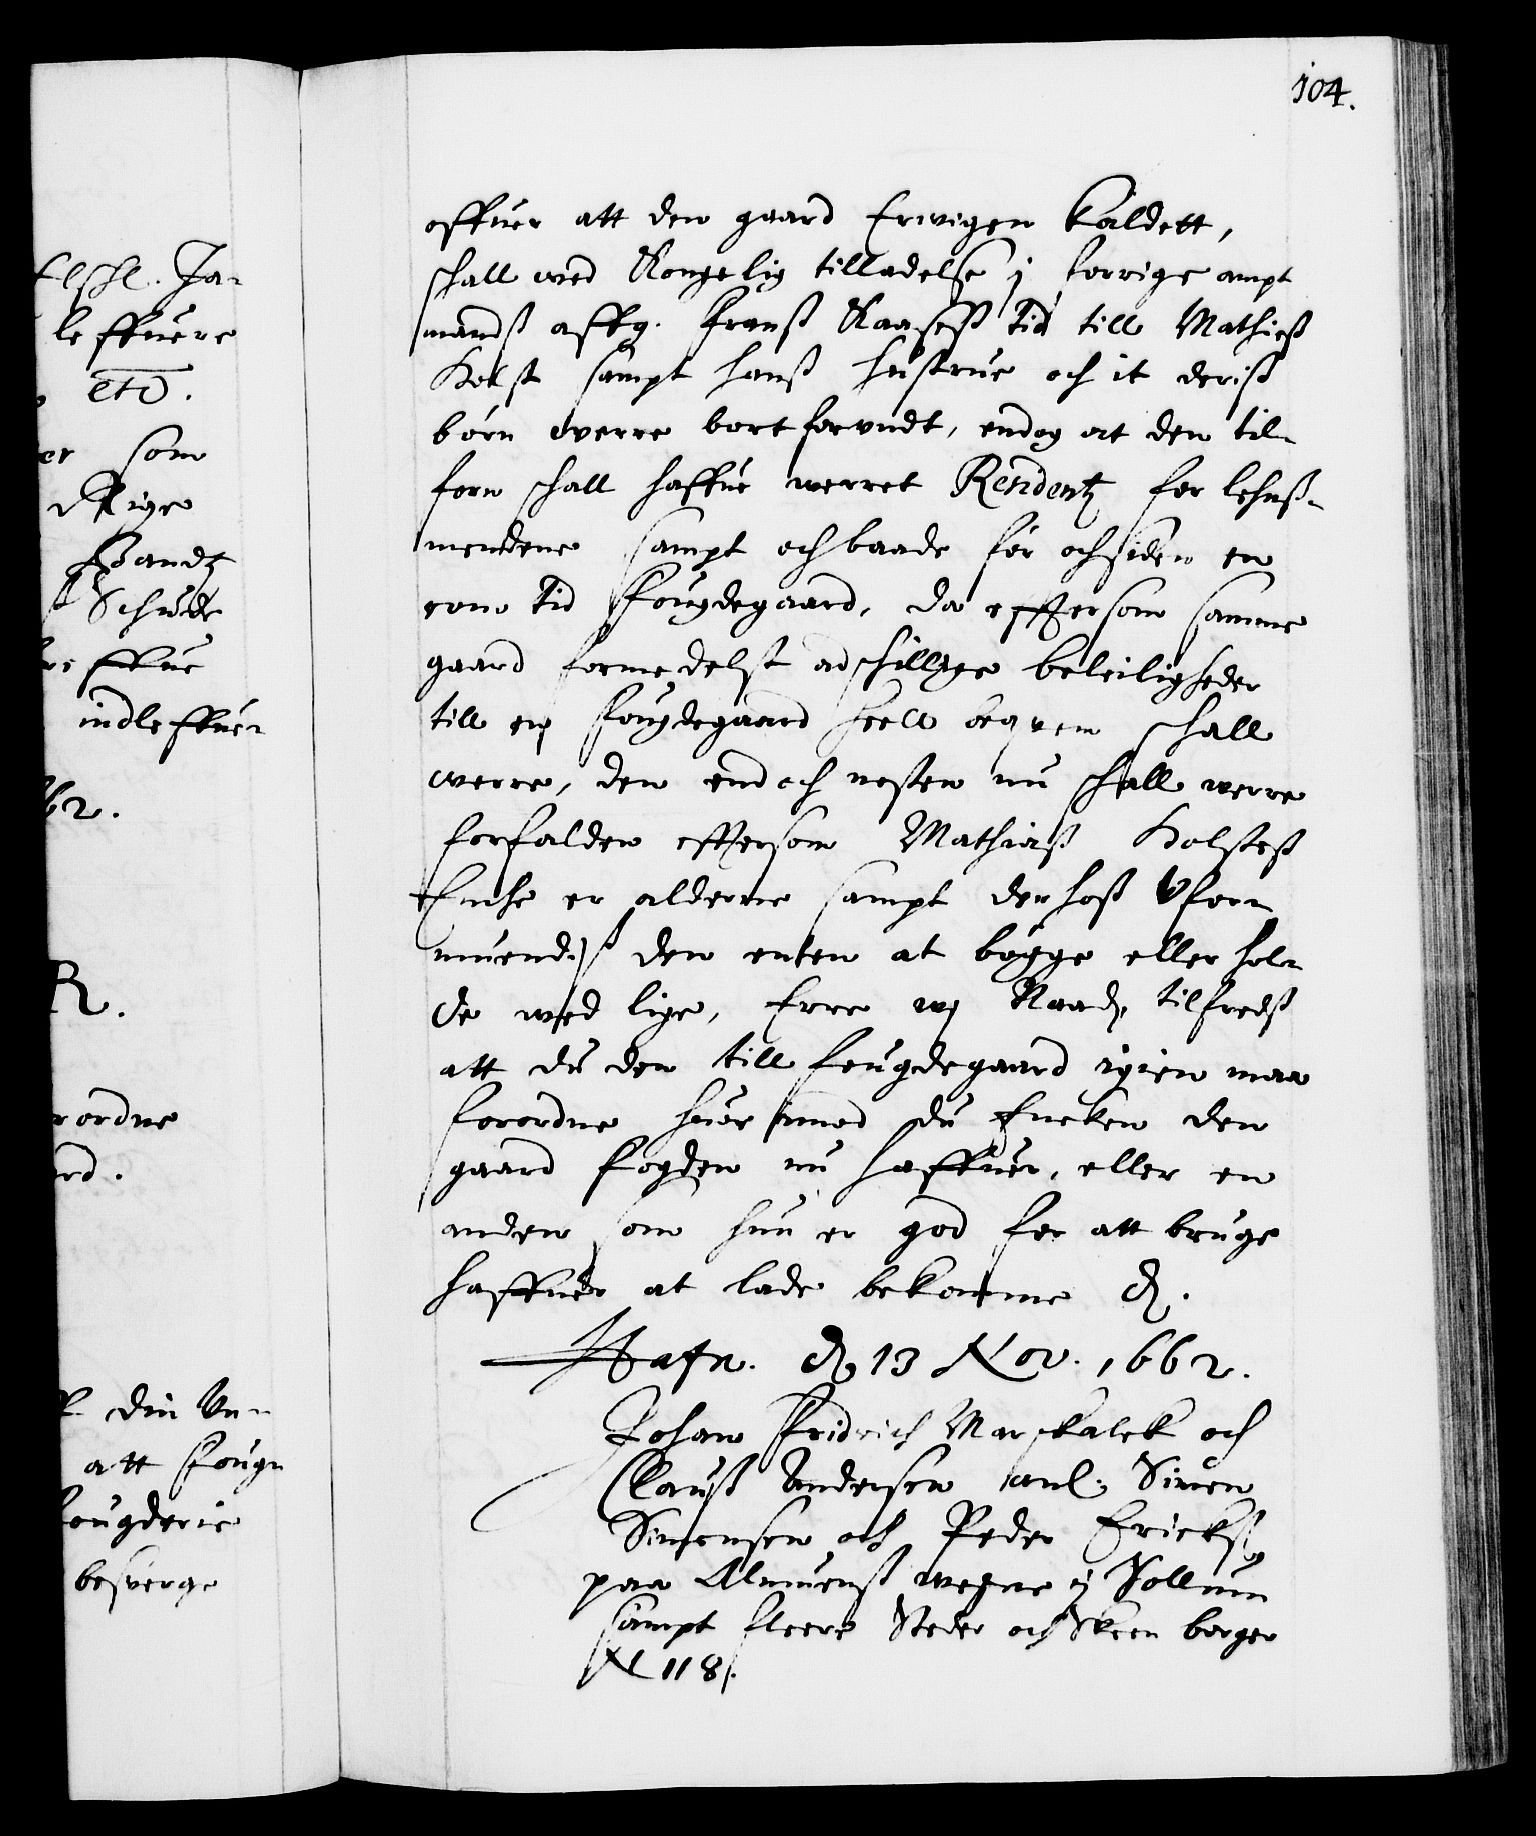 104.
offuer att den gaard Erwigen kaldett,
schall med Kongelig tilladelse j forrige ampt
mandß affg. Franß Kaaseß Tid till Mathieß
Holst sampt hanß hustrue och it deriß
børn werre bortforundt, endog at den til-
forn schall haffue werret Residentz for lehnß-
mendene sampt och baade før och siden en
rom tid fougdegaard, da effterson samme
gaard formedelst adschillige beleiligheder
till en fougdegaard heell beqvem schall
werre, den end och nesten nu schall werre
forfalden effterson Mathiaß Holsteß
Encke er alderne sampt derhoß Ufor-
muendiß den enten at bøgge eller hol-
de wed lige, Erre wj Naadn. tilfredß
att du den till fougdegaard igien maa
forordne huor imod du Encken den
gaard fogden nu haffuer, eller en
anden som hun er god for att bruge
haffuer at lade bekomme
Hafn. d. 13 Nov. 1662.
Johan Fridrich Marskalck och
Clauß Andersen anl. Simen
Simensen och Peder Erickß.
paa Almuenß wegne ij Sollum
sampt fleere Steder och Skeen borger
N 118.
elschl. Ja-
leffuere
etc.
er som
Schude
indleffuer
62.
R.
rordne
rd.
din Un-
att foug-
fougderie
besverge